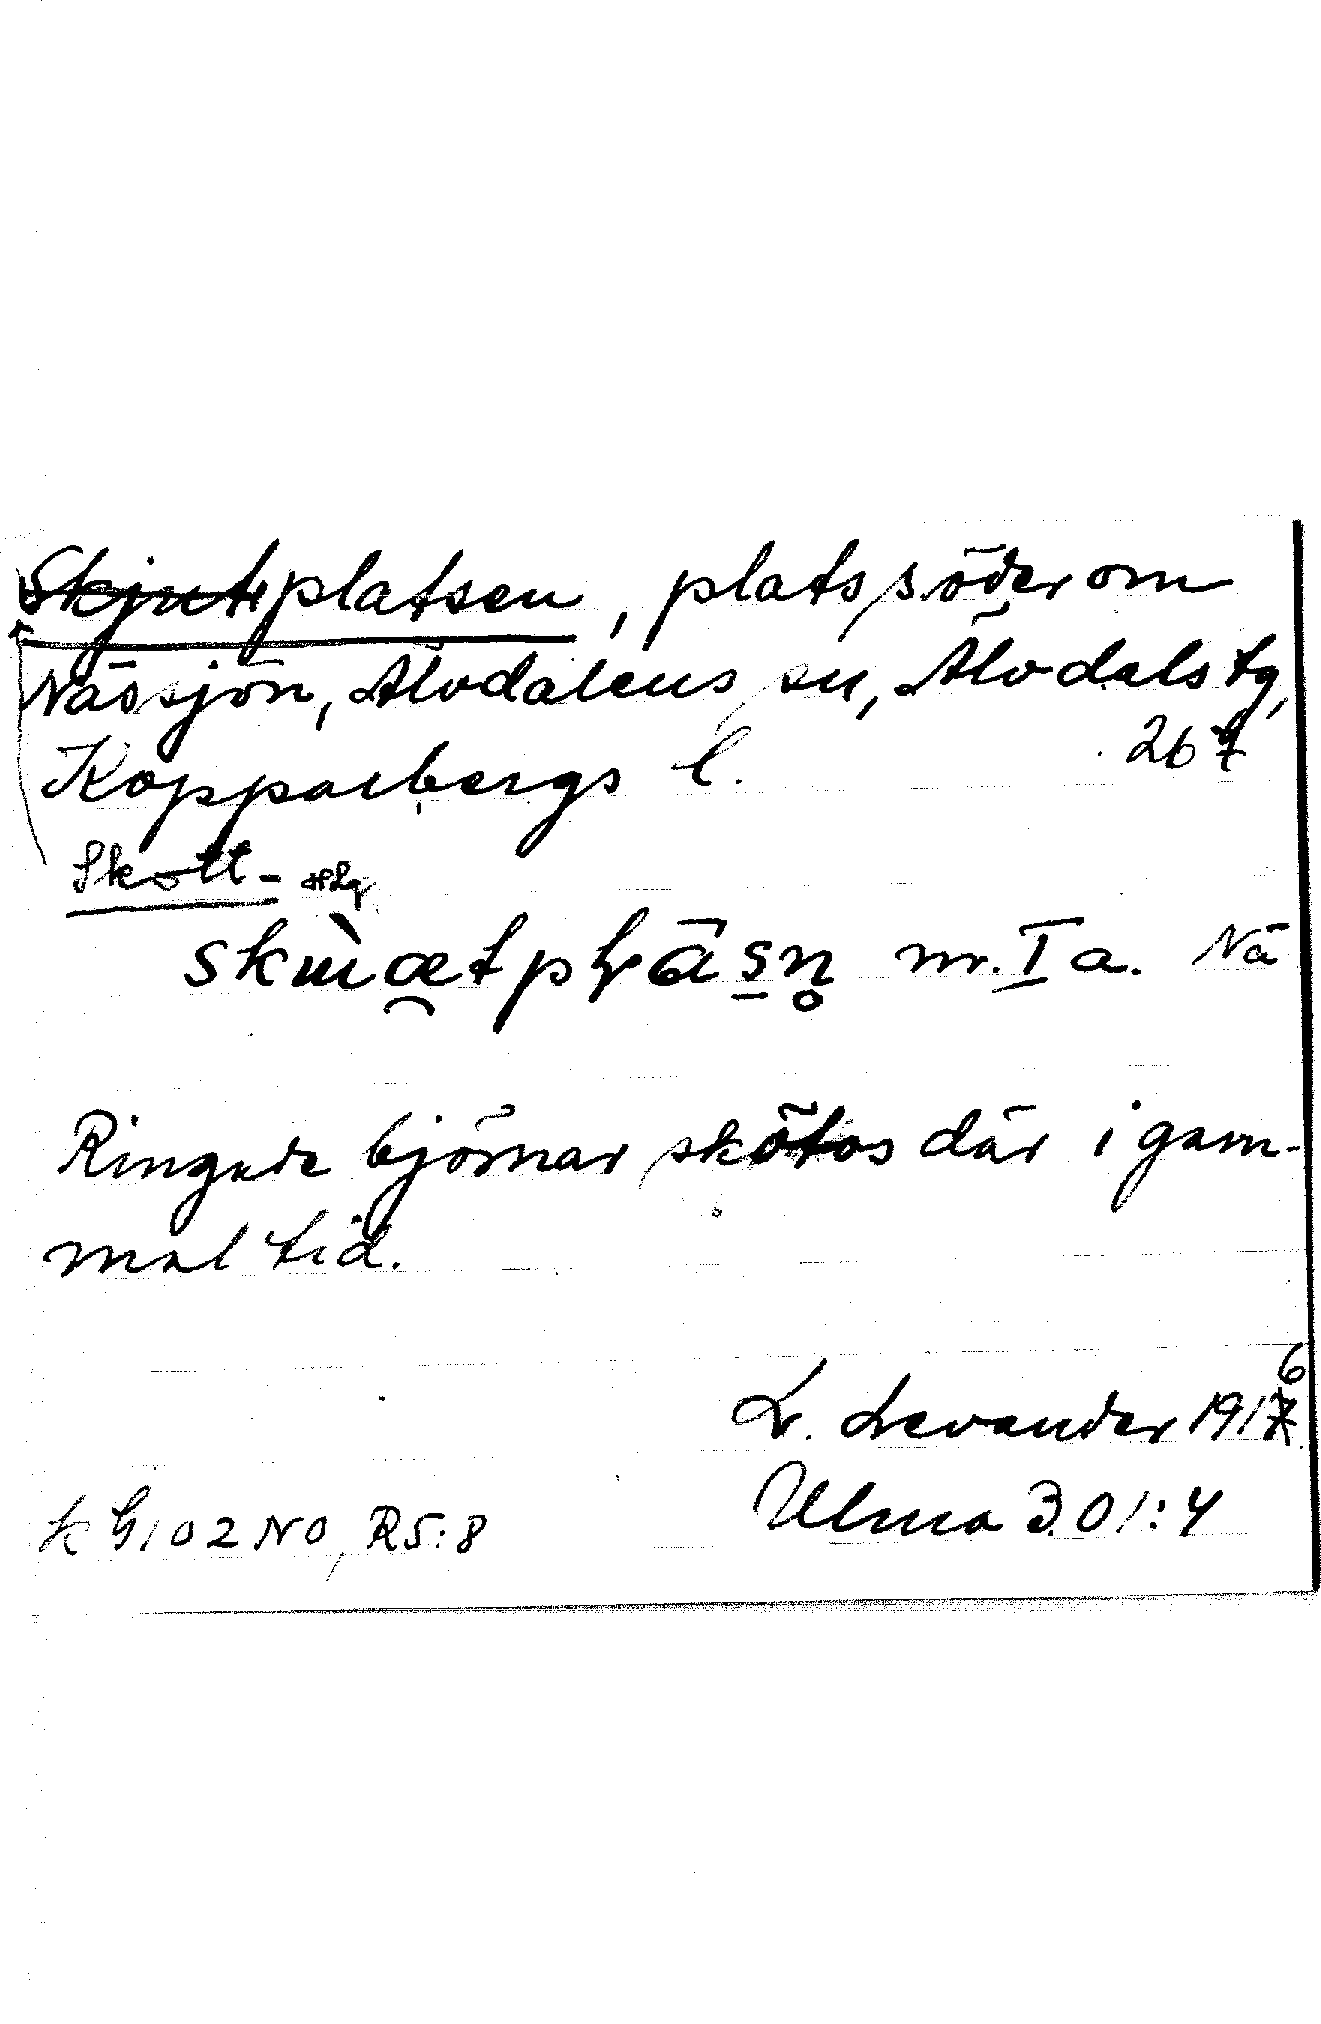 Skjutplatsen, plats söder om
Nässjön, Älvdalens sn, Älvdals tg,
Kopparbergs l. 267
Skott-
skɯ̀œtpḷāṣn̥ nr. I a. Nä
Ringade björnar skötos där i gam-
mal tid.
6
L. Levander 1917
Ulma 301:4
k G102 NO, R5:8